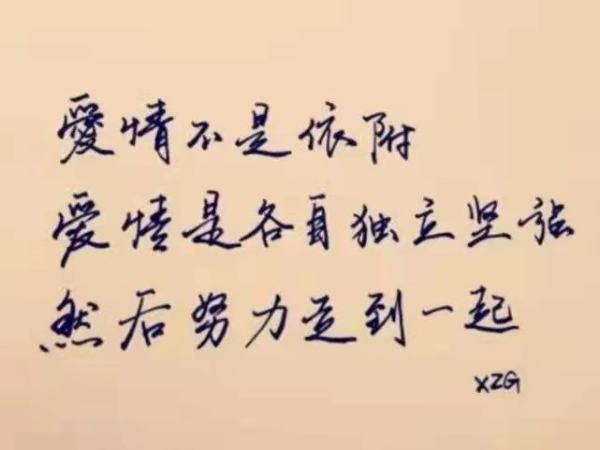 愛情不是依附
爱情是各自独立坚强
然后努力走到一起
XZG